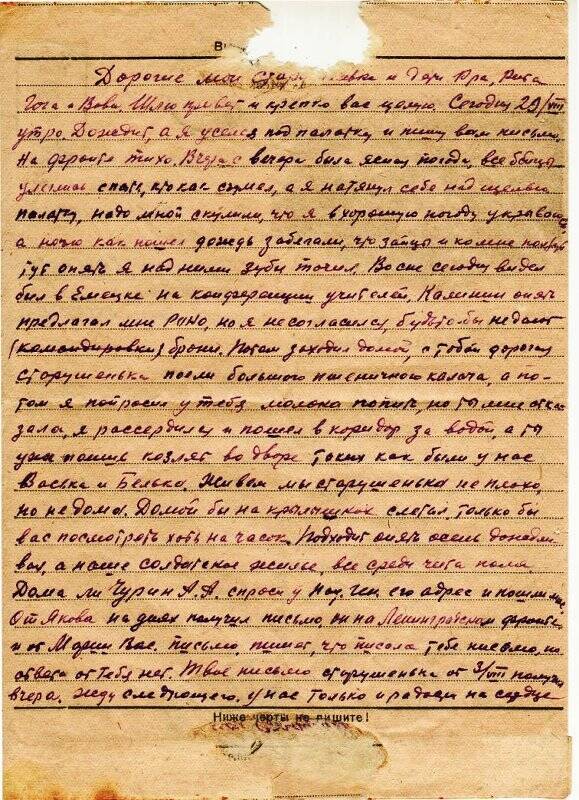 Дорогие мои стару и дети Ира, Рита
Гога и Вова. Шлю привет и крепко вас целую. Сегодня 29/VIII
утро Дождит, а я уселся под палатку и пишу вам письмо.
На фронте тихо. Вчера с вечера была ясная погода, все бойцы
улеглись спать, кто как сумел, а я натянул себе над щелью
палатку, надо мной скулили, что я в хорошую погоду укрываюсь
а ночью как пошел дождь забегали, что зайцы и ко мне
тут опять я над ними зубы точил. Во сне сегодня видел
был в Емецке на конференции учителей, Калинин опять
предлагал мне РОНО, но я не согласился, будьто бы не дают
(командировки) брони. Потом заходил домой, с тобой дорогая
старушенька поели большого пшеничного калача, а по-
том я попросил у тебя молока попить, но ты мне отка-
зала, я рассердился и пошел в коридор за водой, а ты
козлят во дворе таких как были у нас
Васька и Белька. Живем мы старушенька не плохо,
но не дома. Домой бы на крылышках слетал, только бы
вас посмотреть хоть на часок. Подходит опять осень дождли
вая, а наше солдатское жилье, все среди чиста поля.
Дома ли Чурин А.А. спроси у его адрес и пошли мне.
От Якова на днях получил письмо, он на Ленинградском фронте
и от Марии Вас. письмо пишет, что писала тебе письмо, но
ответа от тебя нет. Твое письмо старушенька от 3/VIII получил
вчера. Жду следующего. у нас только и радости на сердце
Ниже черты не пишите!